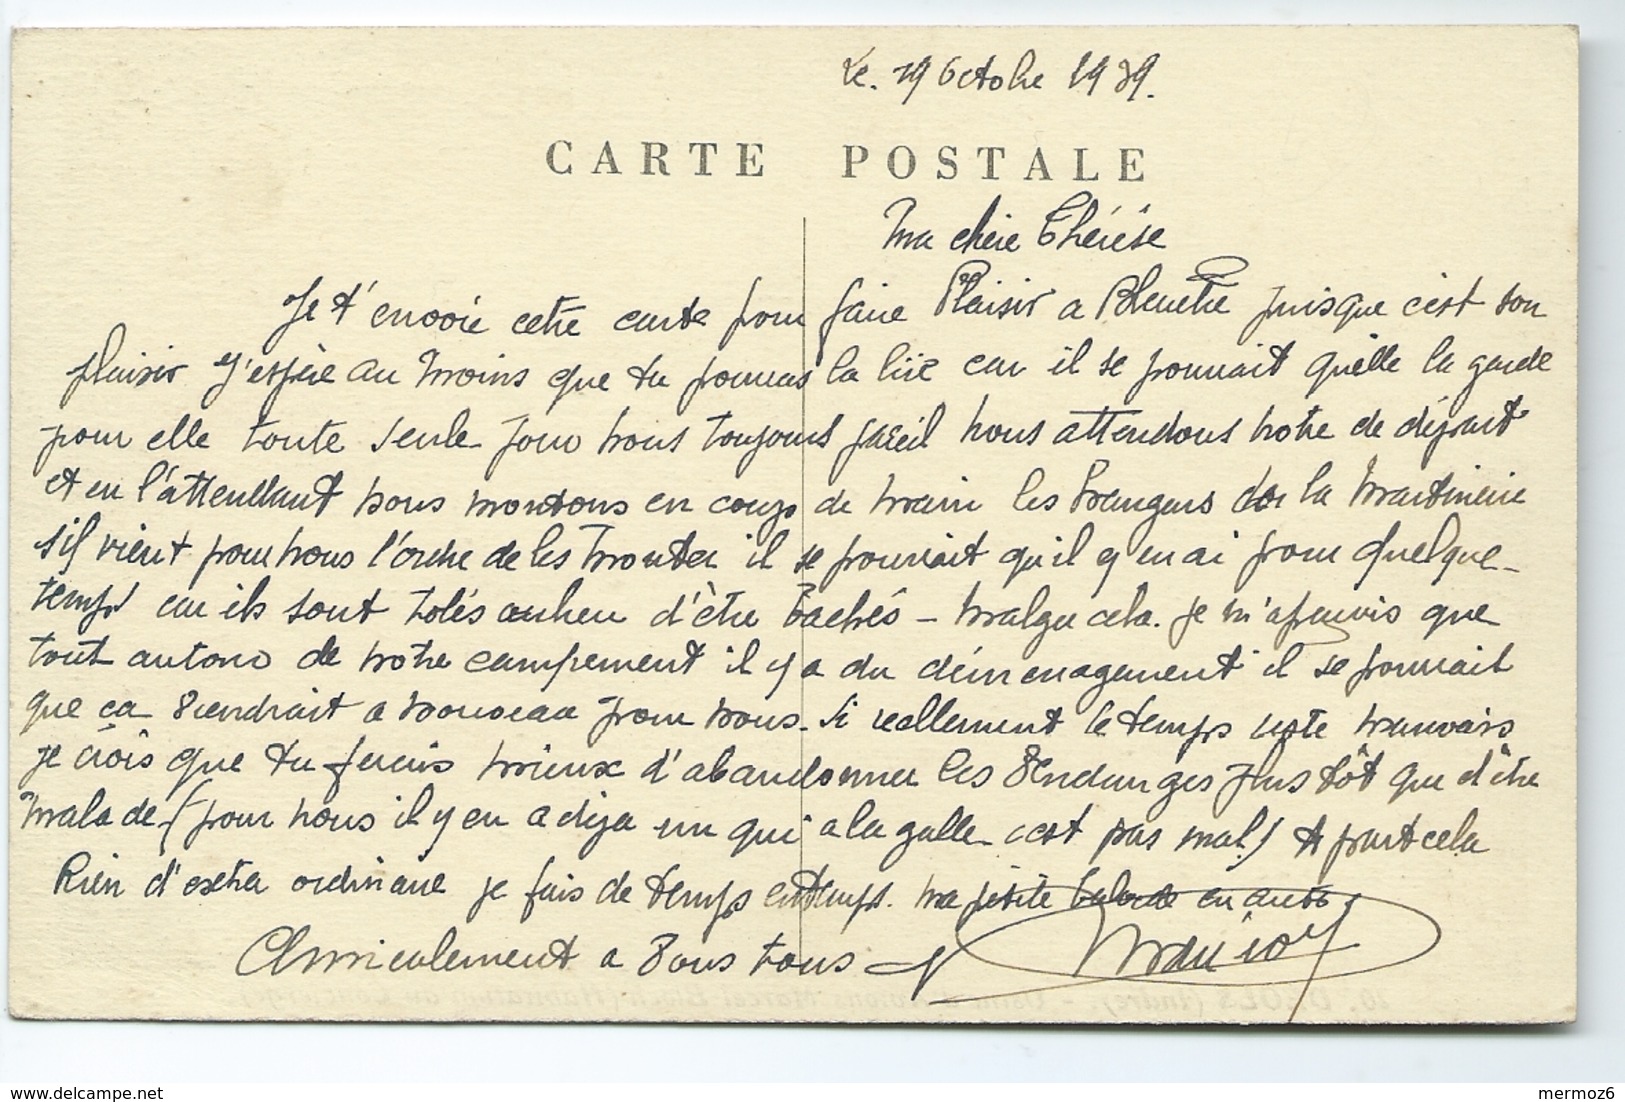 Le. 19 Octobre 1939.
CARTE POSTALE
Ma chère Thérèse
Je t'envoie cette carte pour faire Plaisir a puisque c'est son
plaisir J'espère au moins que tu pourras la lire car il se pourrait quelle la garde
pour elle toute seule Pour nous toujours pareil nous attendons notre de départ
et en l'attendant nous montons en coup de main les hangars de la Martinerie
s'il vient pour nous l'ordre de les monter il se pourrait qu'il y en ai pour quelque-
temps car ils sont tolés aulieu d'être bachés - malgré cela. je m'aperçois que
tout autour de notre campement il y a du déménagement il se pourrait
que ça viendrait a nouveau pour nous. Si reellement le temps reste mauvais
je crois que tu ferais mieux d'abandonner les Vendanges plus tôt que d'être
malade (pour nous il y en a deja un qui a la galle c'est pas mal) A part cela
Rien d'extra ordinaire je fais de temps entemps. ma petite balade en auto
Amicalement a Vous tous
20. DÉOLS (Indre). - Usine d'Avions Marcel Bloch
mermoz6